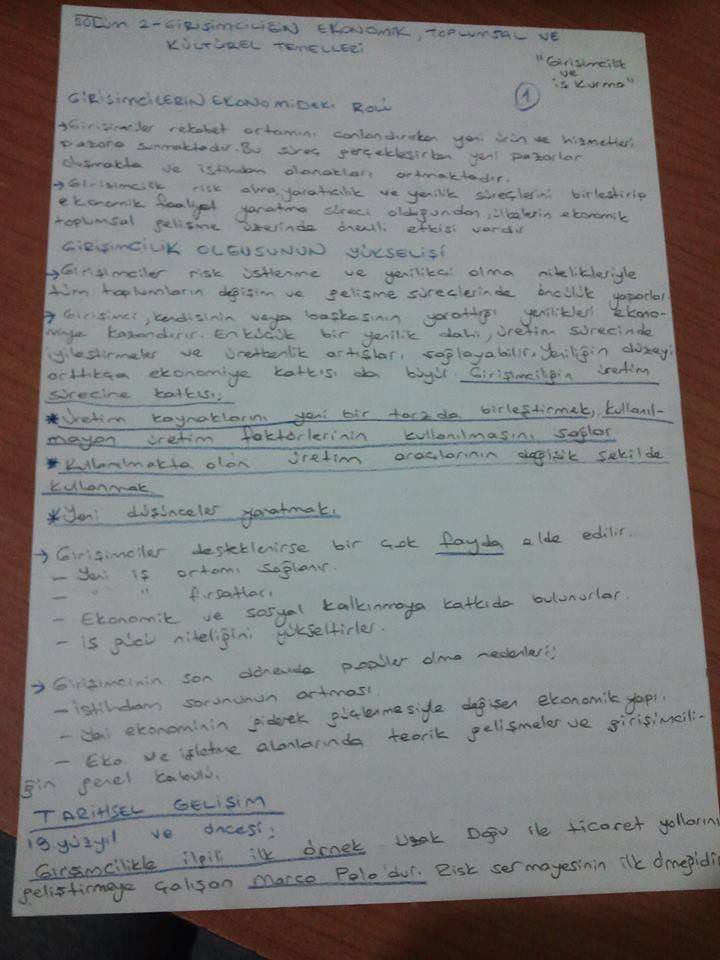 BÖLÜM 2-GİRİŞİMCİLİĞİN EKONOMİK, TOPLUMSAL VE
KÜLTÜREL TEMELLERİ
"Girişimcilik
ve
iş kurma"
1
GİRİŞİMCİLERİN EKONOMİDEKİ ROLÜ
→ Girişimciler rekabet ortamını canlandırırken yeni ürün ve hizmetleri
pazara sunmaktadır. Bu süreç gerçekleşirken yeni pazarlar
oluşmakta ve istihdam olanakları artmaktadır.
→ Girişimcilik risk alma, yaratıcılık ve yenilik süreçlerini birleştirip
ekonomik faaliyet yaratma süreci olduğundan, ülkelerin ekonomik
toplumsal gelişme üzerinde önemli etkisi vardır
GİRİŞİMCİLİK OLGUSUNUN YÜKSELİŞİ
→ Girişimciler risk üstlenme ve yenilikci olma nitelikleriyle
tüm toplumların değişim ve gelişme süreçlerinde öncülük yaparlar.
→ Girişimci, kendisinin veya başkasının yarattığı yenilikleri ekono-
miye kazandırır. En küçük bir yenilik dahi, üretim sürecinde
iyileştirmeler ve üretkenlik artışları sağlayabilir. Yeniliğin düzeyi
arttıkça ekonomiye katkısı da büyür. Girişimciliğin üretim
sürecine katkısı;
* Üretim kaynaklarını yeni bir tarzda birleştirmek, kullanıl-
mayan üretim faktörlerinin kullanılmasını sağlar.
* Kullanılmakta olan üretim araçlarının değişik şekilde
kullanmak
* Yeni düşünceler yaratmak.
→ Girişimciler desteklenirse bir çok fayda elde edilir.
- Yeni iş ortamı sağlanır.
- " " fırsatları
- Ekonomik ve sosyal kalkınmaya katkıda bulunurlar.
- iş gücü niteliğini yükseltirler.
→ Girişimcinin son dönemde popüler olma nedenleri;
- istihdam sorununun artması.
- Yeni ekonominin giderek güçlenmesiyle değişen ekonomik yapı.
- Eko. ve işletme alanlarında teorik gelişmeler ve girişimcili-
ğin genel kabulü.
TARİHSEL GELİŞİM
19 yüzyıl ve öncesi;
Girişimcilikle ilgili ilk örnek Uzak Doğu ile ticaret yollarını
geliştirmeye çalışan Marco Polo'dur. Risk sermayesinin ilk örneğidir